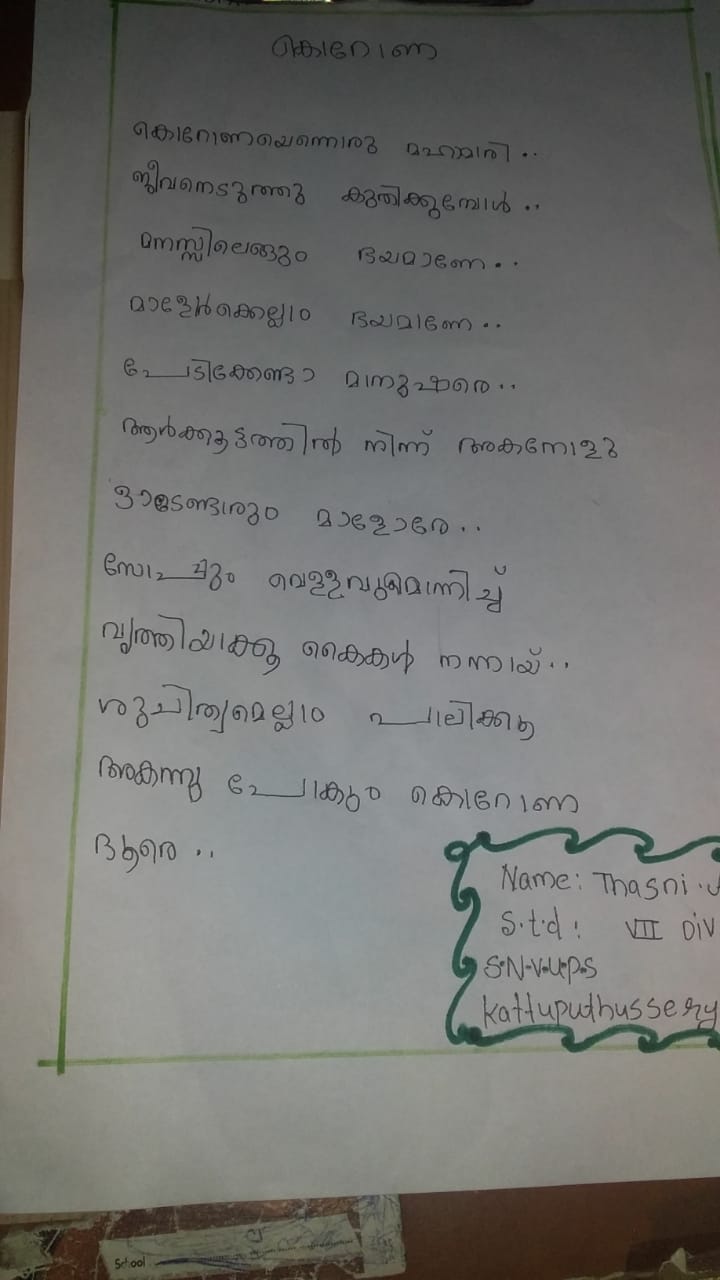 കൊറോണ
കൊറോണയെന്നൊരു മഹാമാരി..
ജീവനെടുത്തു കുതിക്കുമ്പോൾ..
മനസ്സിലെങ്ങും ഭയമാണേ..
മാളോർക്കെല്ലാം ഭയമാണേ..
പേടിക്കേണ്ടാ മാനുഷരെ..
ആൾക്കൂട്ടത്തിൽ നിന്ന് അകന്നോളു
മാളോരേ..
സോപ്പും വെള്ളവുമൊന്നിച്ച്
വൃത്തിയാക്കൂ കൈകൾ നന്നായ്..
ശുചിത്വമെല്ലാം പാലിക്കൂ
അകന്നു പോകും കൊറോണ
ദൂരെ..
Name: Thasni
S.t.d: VII DIV
S.N.V.U.P.S
Kattuputhussery
School